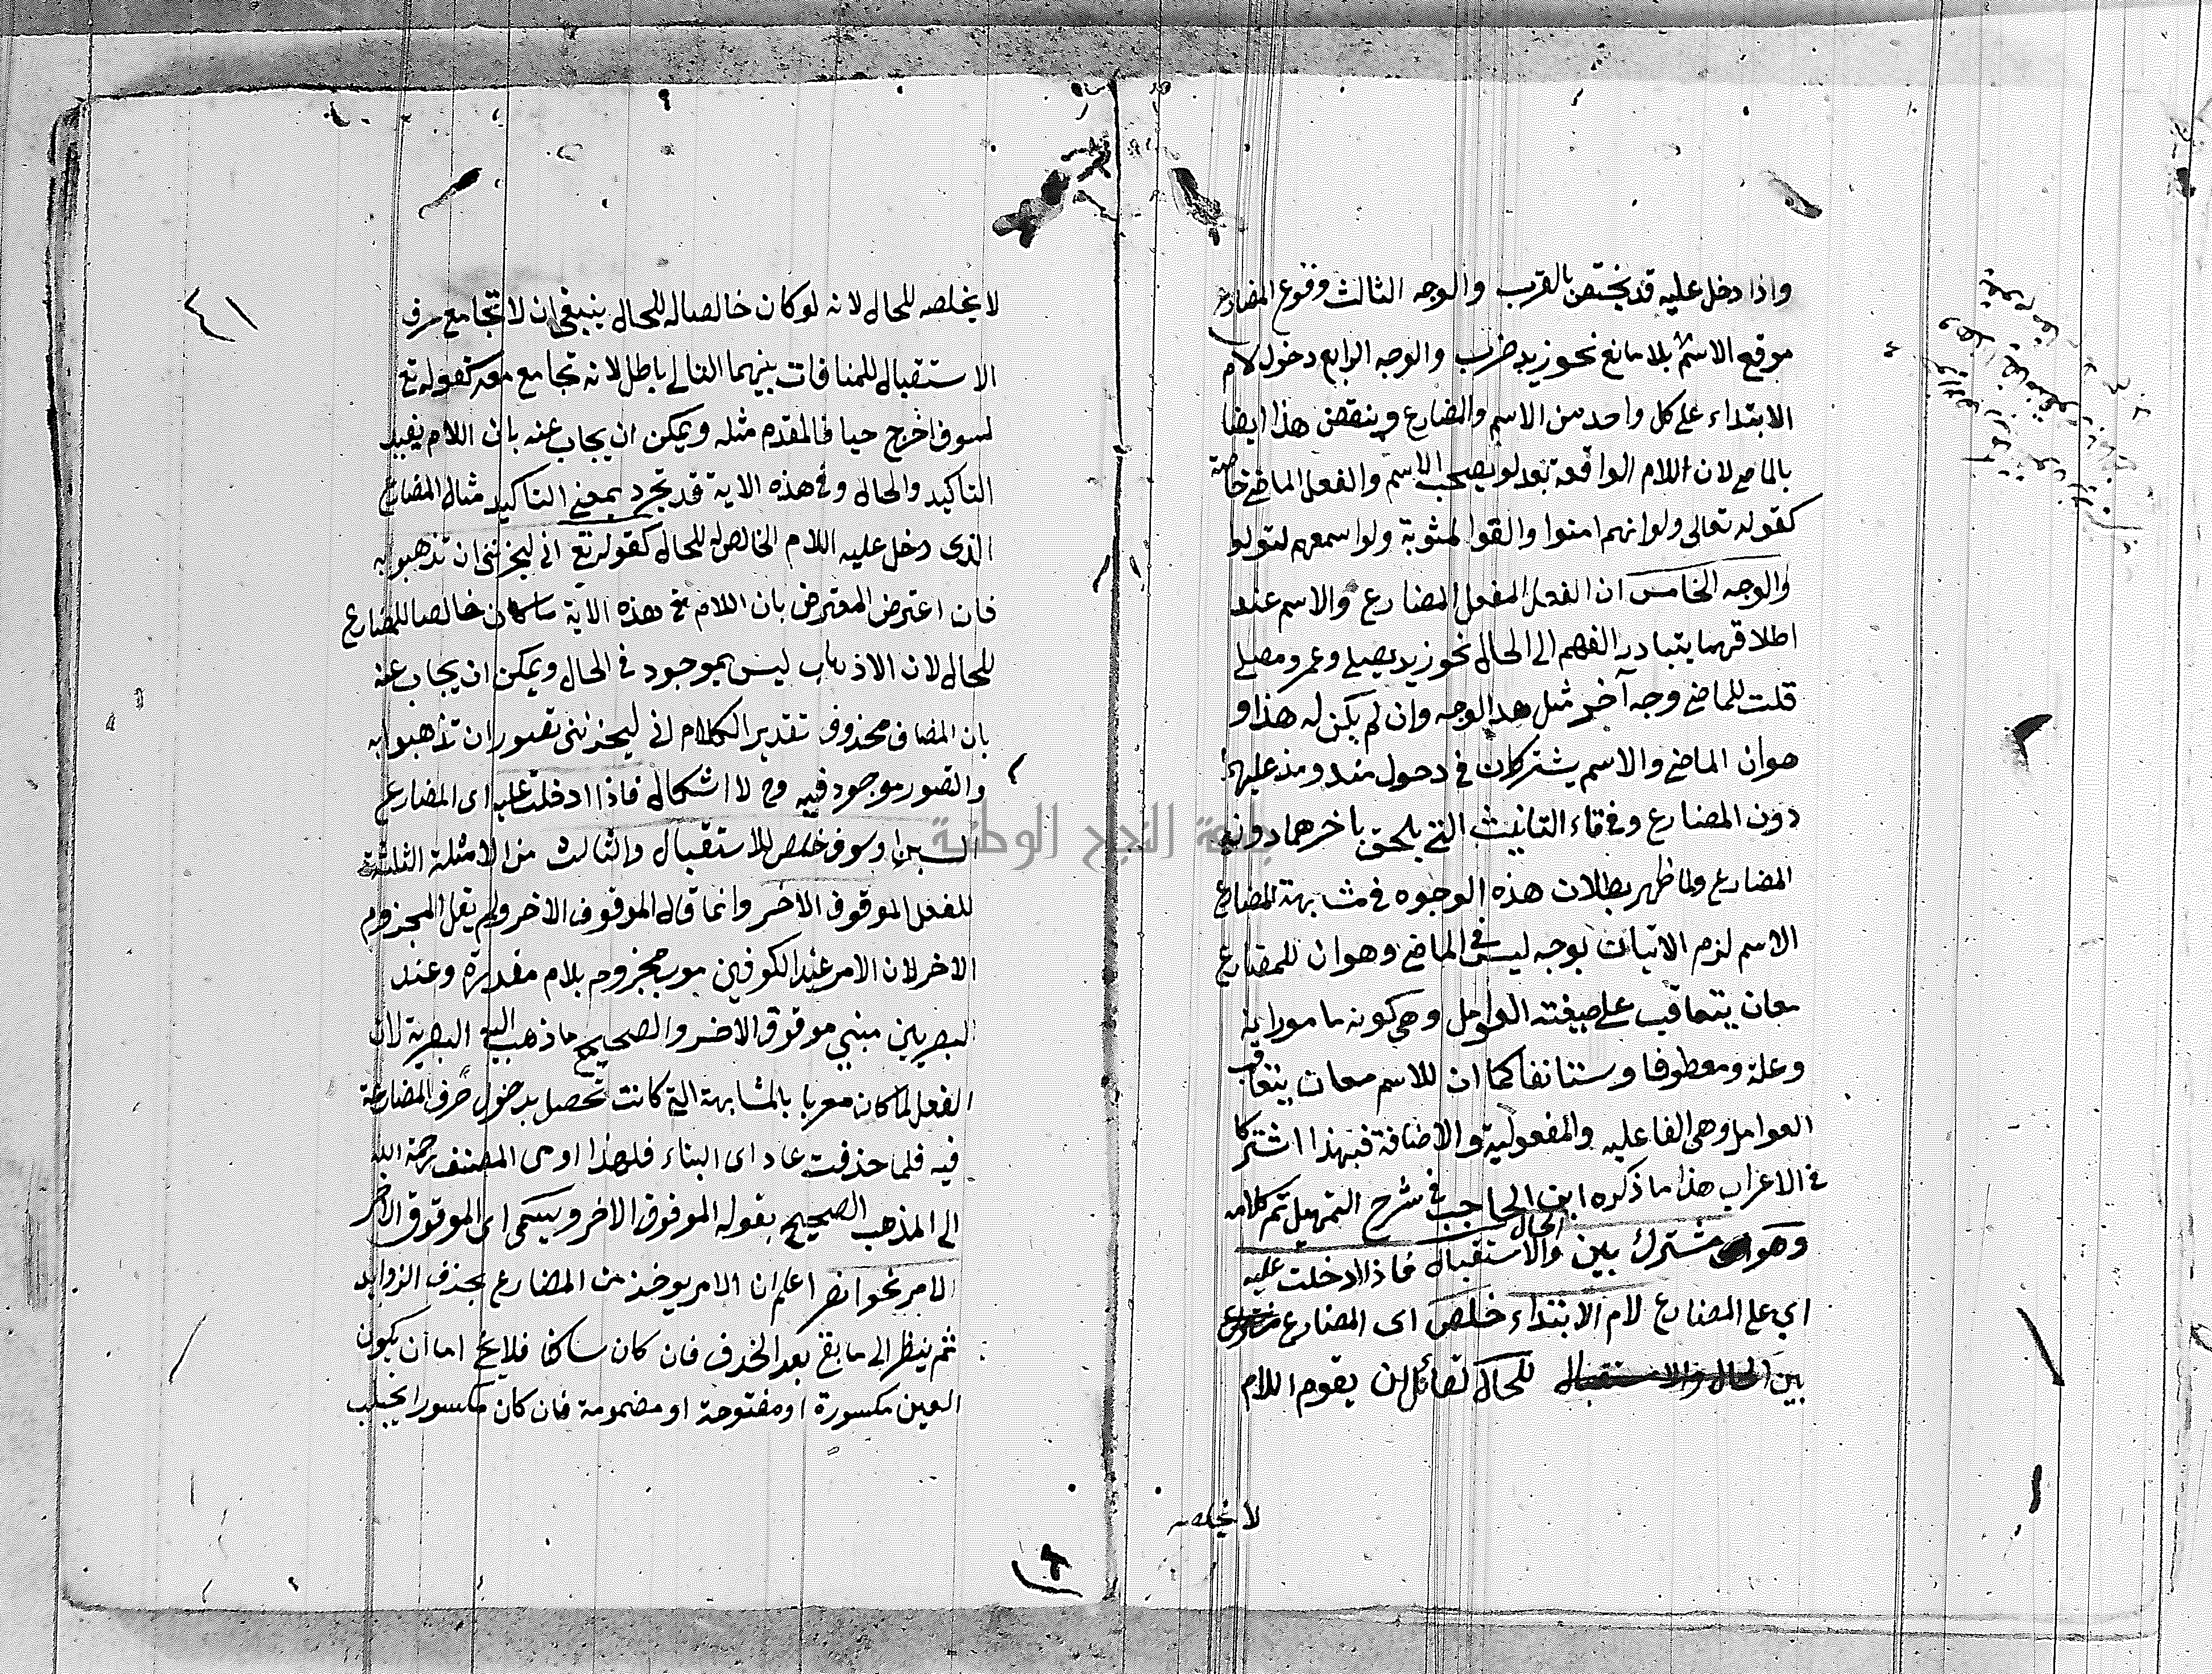 واذا دخل عليه قد يختص بالقرب والوجه الثالث وقوع المضارع
موقع الاسم بلا مانع نحو زيد ضرب والوجه الرابع دخول لام
الابتداء على كل واحد من الاسم والمضارع وينقض هذا ايضا
بالماضي لان اللام الواقعة بعد لو يصحب الاسم والفعل الماضي خاصة
كقوله تعالى ولو انهم امنوا واتقوا لمثوبة ولو اسمعهم لتولوا
والوجه الخامس ان الفعل المضارع والاسم عند
اطلاقهما يتبادر الفهم الى الحال نحو زيد يصلي وعمرو مصلي
قلت للماضي وجه آخر مثل هذا الوجه وان لم يكن له هذا و
هو ان الماضي والاسم يشتركان في دخول منذ ومذ عليهما
دون المضارع وفي تاء التانيث التي يلحق باخرهما دون
المضارع ولما ظهر بطلان هذه الوجوه في مشابهة المضارع
الاسم لزم الاتيان بوجه ليس في الماضي وهو ان للمضارع
معان يتعاقب على صيغته العوامل وهي كونه مامورا به
وعلة ومعطوفا ومستانفا كما ان للاسم معان يتعاقب
العوامل وهي الفاعليه والمفعولية والاضافة فبهذا اشتركا
في الاعراب هذا ما ذكره ابن الحاجب في شرح التسهيل تم كلامه
وهو مشترك بين الحال والاستقبال فاذا ادخلت عليه
اي على المضارع لام الابتداء خلص اى المضارع
بين الحال والاستقبال للحال لقائل ان يقوم اللام
لا يخلصه
٤١
لا يخلصه للحال لانه لو كان خالصا له للحال ينبغي ان لا تجامع حرف
الاستقبال للمنافات بينهما التالي باطل لانه تجامع معه كقوله تع
لسوف اخرج حيا فالمقدم مثله ويمكن ان يجاب عنه بان اللام يفيد
التاكيد والحال وفي هذه الاية قد تجرد بمعنى التاكيد مثال المضارع
الذى دخل عليه اللام الخالص له للحال كقوله تع اني ليحزنني ان تذهبوا به
فان اعترض المعترض بان اللام في هذه الآية ما كان خالصا للمضارع
للحال لان الاذهاب ليس بموجود في الحال ويمكن ان يجاب عنه
بان المضاف محذوف تقدير الكلام اني ليحذنني تصور ان تذهبوا به
والتصور موجود فيه وح لا اشكال فاذا ادخلت عليه اى المضارع
السين او سوف خلص للاستقبال والثالث من الامثلة الثلثة
للفعل الموقوف الاخر وانما قال الموقوف الاخر ولم يقل المجزوم
الاخر لان الامر عند الكوفين مجزوم بلام مقدرة وعند
البصريين مبني موقوف الاخر والصحيح ما ذهب اليه البصرية لان
الفعل لما كان معربا بالمشابهة التي كانت تحصل بدخول حرف المضارعة
فيه فلما حذفت عاد اى البناء فلهذا اومى المصنف رحمة الله
الى المذهب الصحيح بقوله الموقوف الاخر ويسمى اى الموقوف الاخر
الامر نحو انصر اعلم ان الامر يوخذ من المضارع بحذف الزوايد
ثم ينظر الى ما بقي بعد الحذف فان كان ساكنا فلا يخ اما ان يكون
العين مكسورة او مفتوحة او مضمومة فان كان مكسورا يجتلب
جامعة النجاح الوطنية